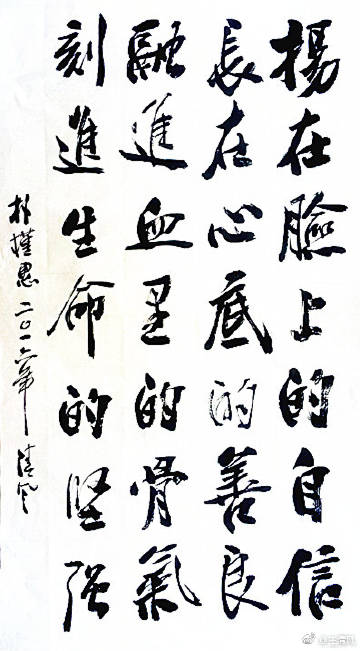 揚在臉上的自信
長在心底的善良
融進血里的骨氣
刻進生命的堅强
朴槿惠 二〇一六年 清风